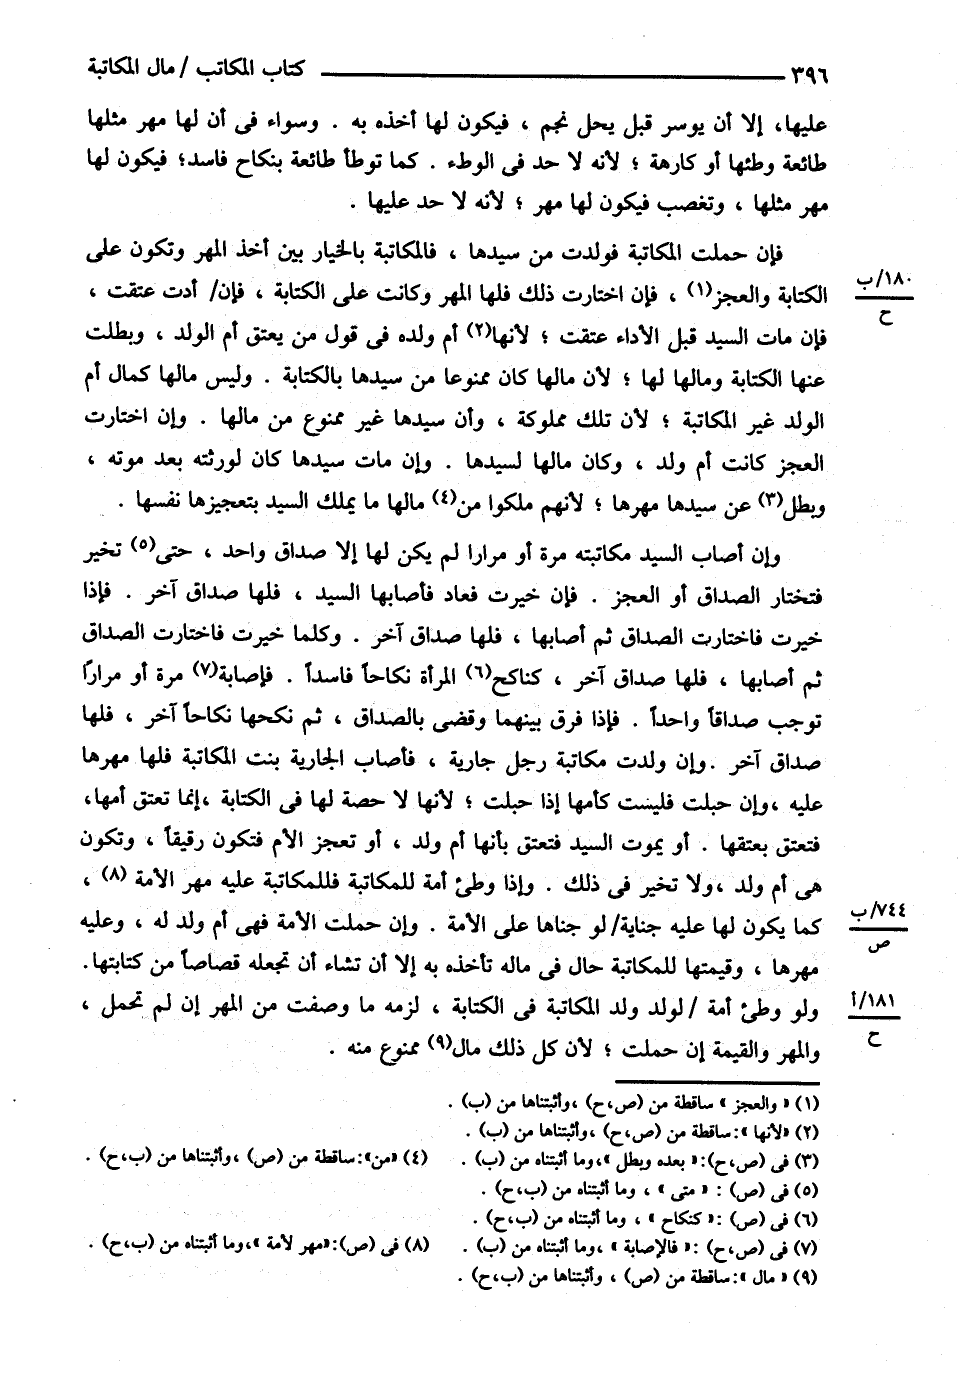 ٣٩٦ كتاب المكاتب / مال المكاتبة
عليها، إلا أن يوسر قبل يحل نجم ، فيكون لها أخذه به . وسواء فى أن لها مهر مثلها
طائعة وطئها أو كارهة ؛ لأنه لا حد فى الوطء . كما توطأ طائعة بنكاح فاسد؛ فيكون لها
مهر مثلها ، وتغصب فيكون لها مهر ؛ لأنه لا حد عليها .
فإن حملت المكاتبة فولدت من سيدها ، فالمكاتبة بالخيار بين أخذ المهر وتكون على
الكتابة والعجز(١) ، فإن اختارت ذلك فلها المهر وكانت على الكتابة ، فإن/ أدت عتقت ،
١٨٠/ب
ح
فإن مات السيد قبل الأداء عتقت ؛ لأنها(٢) أم ولده فى قول من يعتق أم الولد ، وبطلت
عنها الكتابة ومالها لها ؛ لأن مالها كان ممنوعا من سيدها بالكتابة . وليس مالها كمال أم
الولد غير المكاتبة ؛ لأن تلك مملوكة ، وأن سيدها غير ممنوع من مالها . وإن اختارت
العجز كانت أم ولد ، وكان مالها لسيدها . وإن مات سيدها كان لورثته بعد موته ،
وبطل(٣) عن سيدها مهرها ؛ لأنهم ملكوا من(٤) مالها ما يملك السيد بتعجيزها نفسها .
وإن أصاب السيد مكاتبته مرة أو مرارا لم يكن لها إلا صداق واحد ، حتى(٥) تخير
فتختار الصداق أو العجز . فإن خيرت فعاد فأصابها السيد ، فلها صداق آخر . فإذا
خيرت فاختارت الصداق ثم أصابها ، فلها صداق آخر . وكلما خيرت فاختارت الصداق
ثم أصابها ، فلها صداق آخر ، كناكح(٦) المرأة نكاحاً فاسداً . فإصابة(٧) مرة أو مراراً
توجب صداقاً واحداً . فإذا فرق بينهما وقضى بالصداق ، ثم نكحها نكاحاً آخر ، فلها
صداق آخر .وإن ولدت مكاتبة رجل جارية ، فأصاب الجارية بنت المكاتبة فلها مهرها
عليه ،وإن حبلت فليست كأمها إذا حبلت ؛ لأنها لا حصة لها فى الكتابة ،إنما تعتق أمها،
فتعتق بعتقها . أو يموت السيد فتعتق بأنها أم ولد ، أو تعجز الأم فتكون رقيقاً ، وتكون
هى أم ولد ،ولا تخير فى ذلك . وإذا وطئ أمة للمكاتبة فللمكاتبة عليه مهر الأمة (٨) ،
كما يكون لها عليه جناية/ لو جناها على الأمة . وإن حملت الأمة فهى أم ولد له ، وعليه
٧٤٤/ب
ص
مهرها ، وقيمتها للمكاتبة حال فى ماله تأخذه به إلا أن تشاء أن تجعله قصاصاً من كتابتها.
ولو وطئ أمة /لولد ولد المكاتبة فى الكتابة ، لزمه ما وصفت من المهر إن لم تحمل ،
١٨١/أ
ح
والمهر والقيمة إن حملت ؛ لأن كل ذلك مال(٩) ممنوع منه .
(١) « والعجز » ساقطة من (ص،ح) ،وأثبتناها من (ب) .
(٢) «لأنها »:ساقطة من (ص،ح) ،وأثبتناها من (ب) .
(٣) فى (ص،ح):« بعده وبطل»،وما أثبتناه من (ب) . (٤) «من»:ساقطة من (ص) ،وأثبتناها من (ب،ح) .
(٥) فى (ص) : « متى » ، وما أثبتناه من (ب،ح) .
(٦) فى (ص) :« كنكاح » ، وما أثبتناه من (ب،ح) .
(٧) فى (ص،ح) :« فالإصابة » ،وما أثبتناه من (ب) . (٨) فى (ص):«مهر لأمة »،وما أثبتناه من (ب،ح) .
(٩) « مال »:ساقطة من (ص) ، وأثبتناها من (ب،ح) .